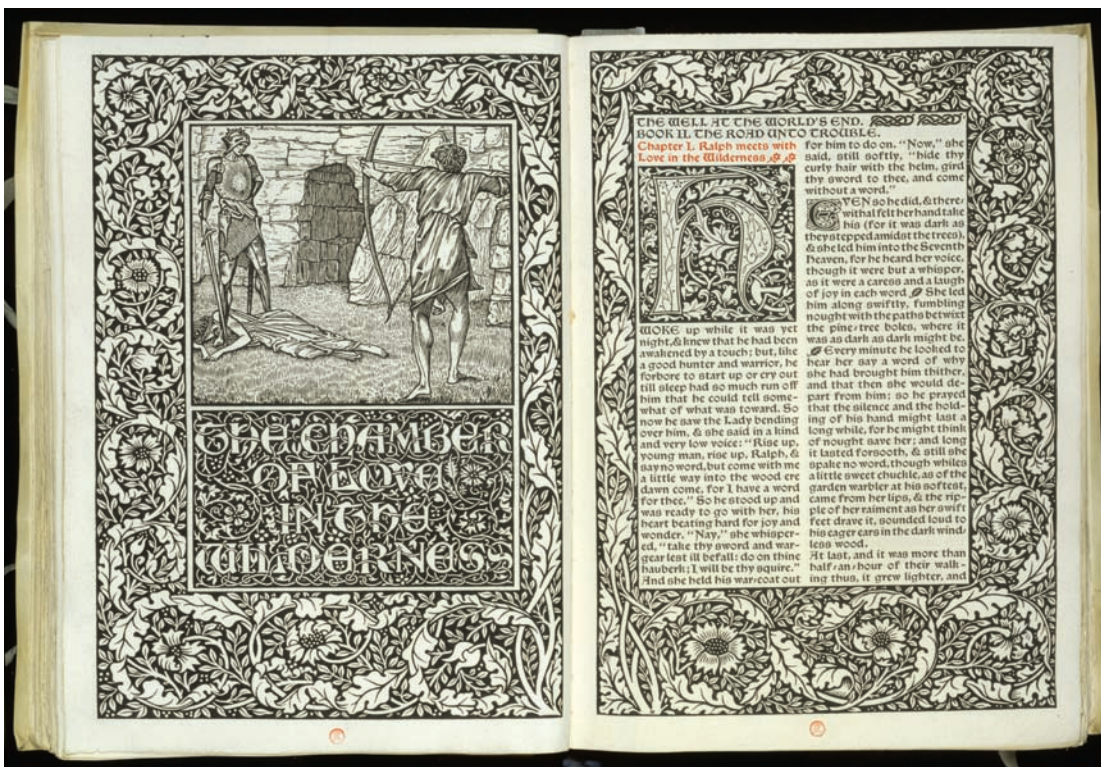 THE CHAMBER
OF LOVE
IN THE
WILDERNESS
THE WELL AT THE WORLD'S END.
BOOK II. THE ROAD UNTO TROUBLE.
Chapter I. Ralph meets with
Love in the Wilderness
HE
WOKE up while it was yet
night, & knew that he had been
awakened by a touch; but, like
a good hunter and warrior, he
forbore to start up or cry out
till sleep had so much run off
him that he could tell some-
what of what was toward. So
now he saw the Lady bending
over him, & she said in a kind
and very low voice: "Rise up,
young man, rise up, Ralph, &
say no word, but come with me
a little way into the wood ere
dawn come, for I have a word
for thee." So he stood up and
was ready to go with her, his
heart beating hard for joy and
wonder. "Nay," she whisper-
ed, "take thy sword and war-
gear lest ill befall: do on thine
hauberk; I will be thy squire."
And she held his war-coat out
for him to do on. "Now," she
said, still softly, "hide thy
curly hair with the helm, gird
thy sword to thee, and come
without a word."
EVEN so he did, & there-
withal felt her hand take
his (for it was dark as
they stepped amidst the trees),
& she led him into the Seventh
Heaven, for he heard her voice,
though it were but a whisper,
as it were a caress and a laugh
of joy in each word. She led
him along swiftly, fumbling
nought with the paths betwixt
the pine-tree boles, where it
was as dark as dark might be.
Every minute he looked to
hear her say a word of why
she had brought him thither,
and that then she would de-
part from him; so he prayed
that the silence and the hold-
ing of his hand might last a
long while, for he might think
of nought save her; and long
it lasted forsooth, & still she
spake no word, though whiles
a little sweet chuckle, as of the
garden warbler at his softest,
came from her lips, & the rip-
ple of her raiment as her swift
feet drave it, sounded loud to
his eager ears in the dark wind-
less wood.
At last, and it was more than
half-an-hour of their walk-
ing thus, it grew lighter, and